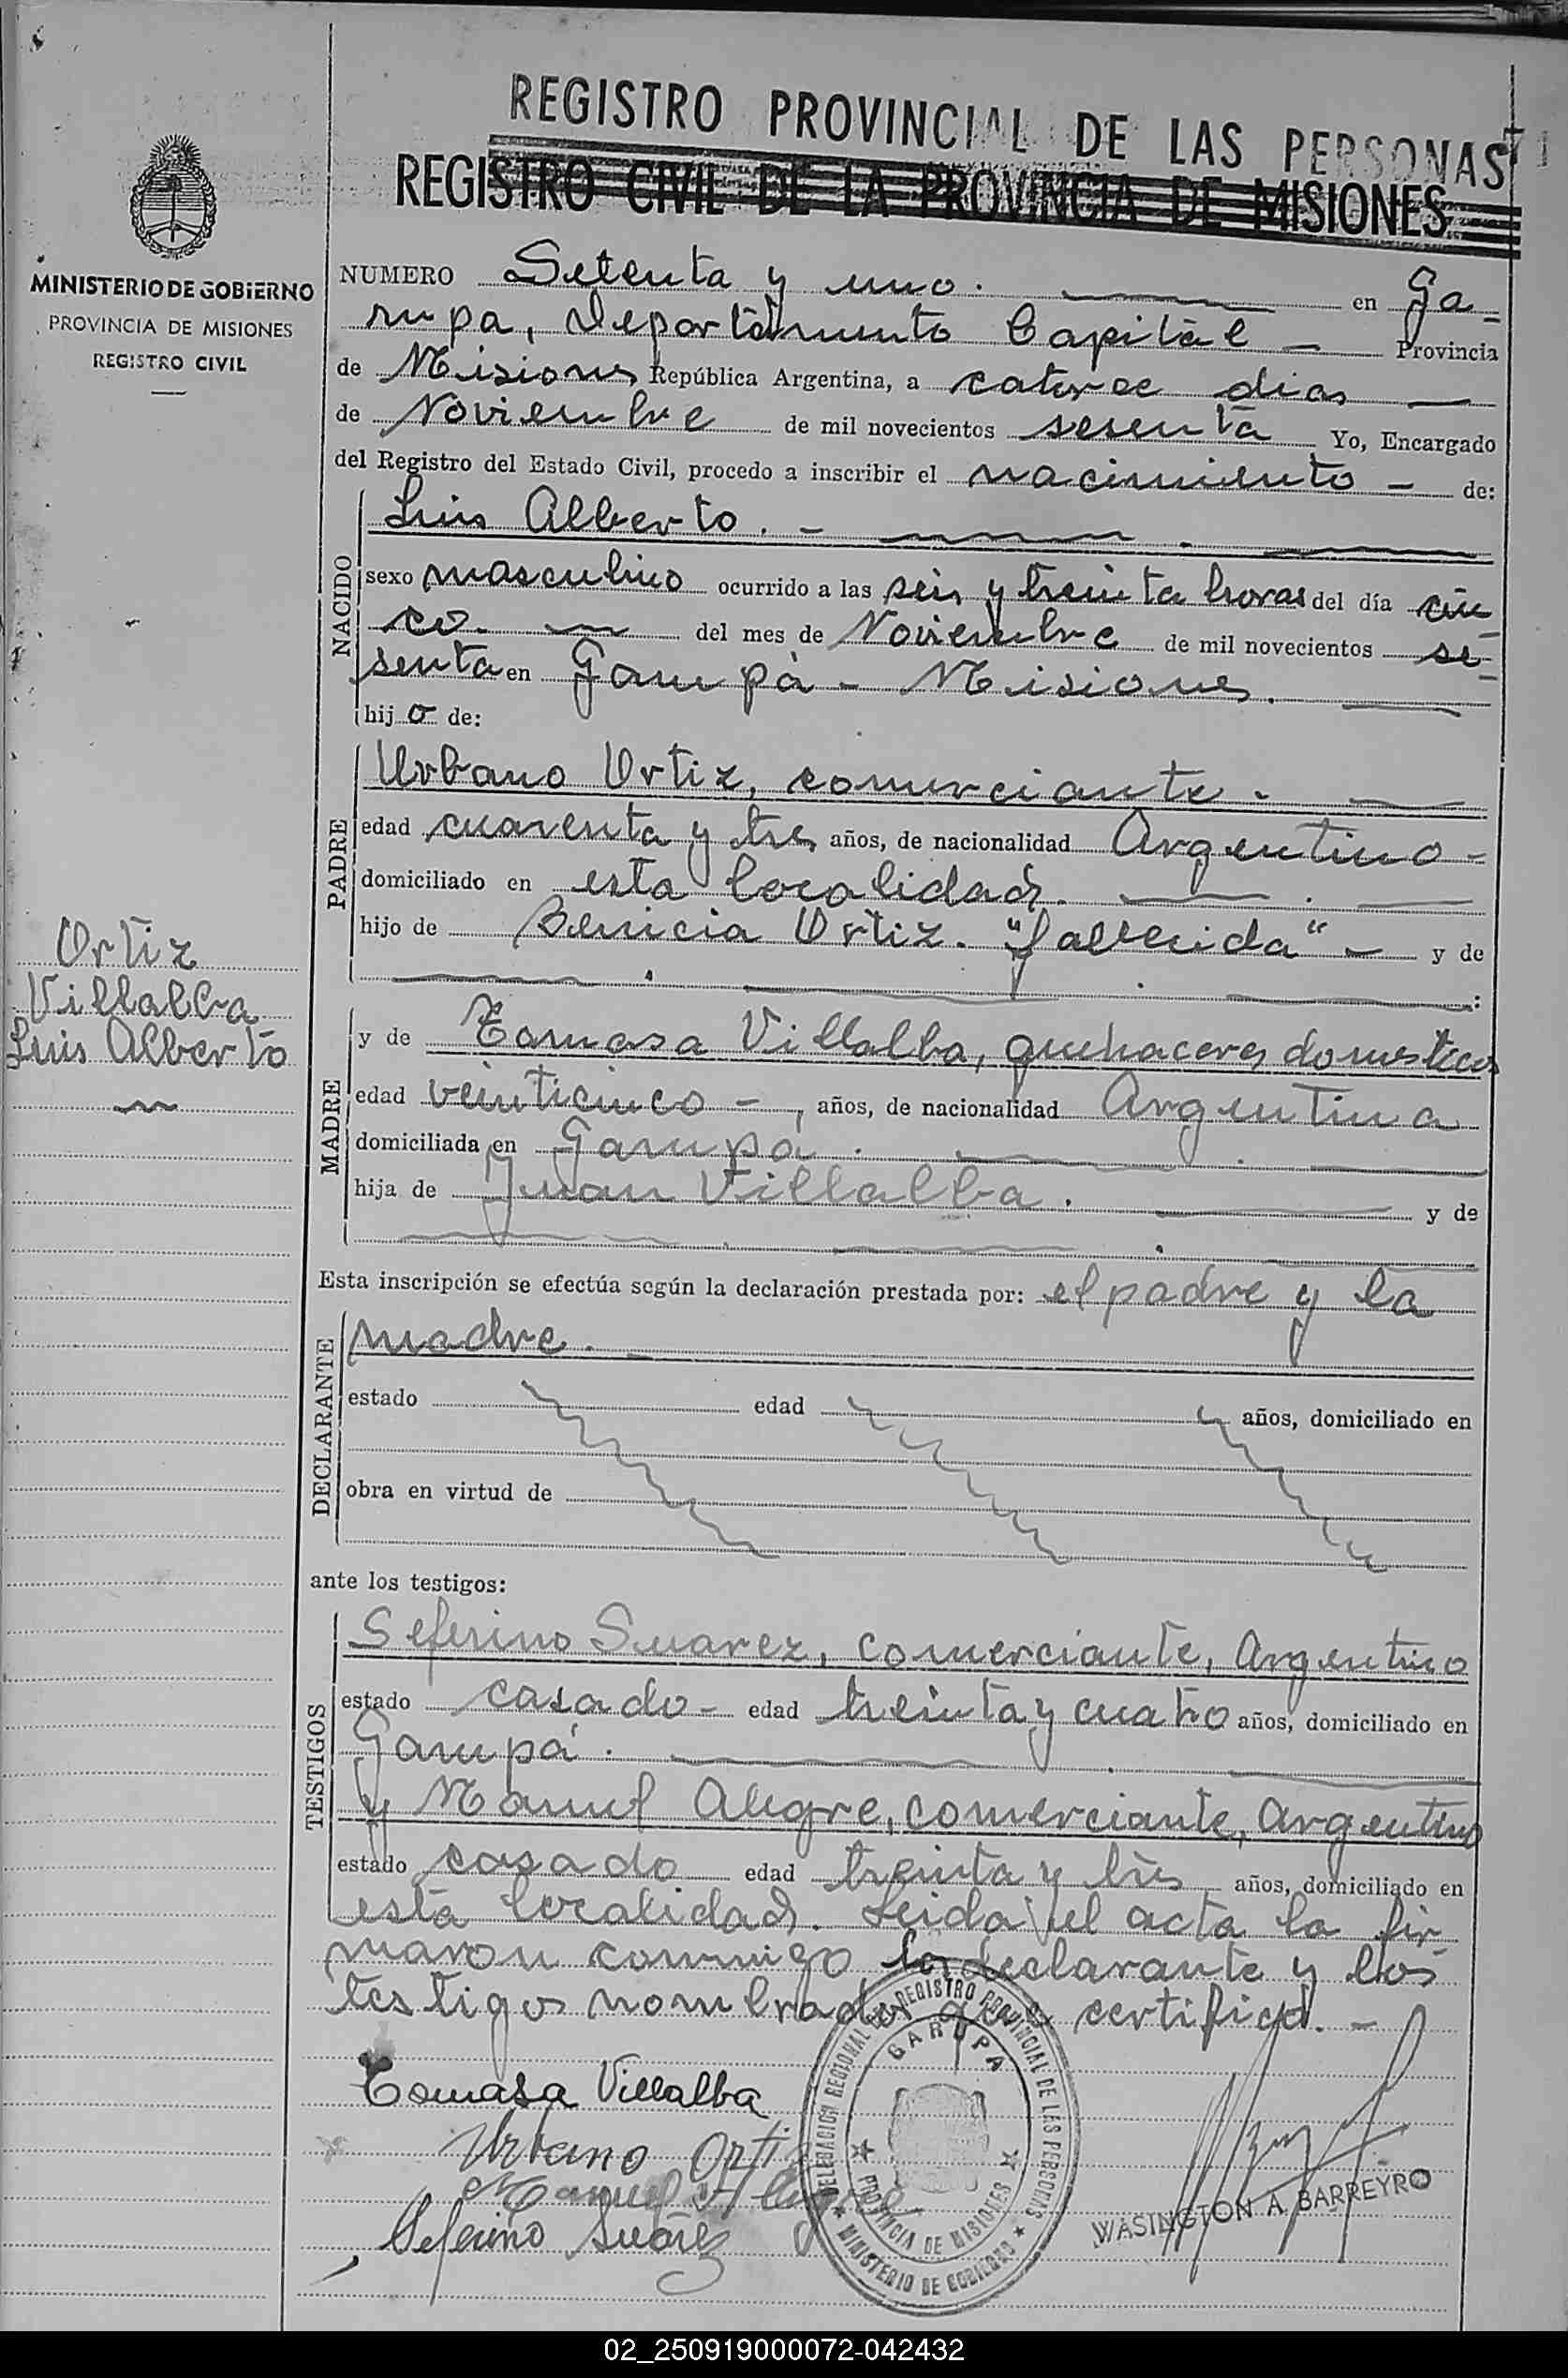 REGISTRO PROVINCIAL DE LAS PERSONAS
REGISTRO CIVIL DE LA PROVINCIA DE MISIONES
MINISTERIO DE GOBIERNO
PROVINCIA DE MISIONES
REGISTRO CIVIL
NUMERO Setenta y uno. en Ga-
rupa, Departamento Capital - Provincia
de Misiones República Argentina, a catorce dias
de Noviembre de mil novecientos sesenta Yo, Encargado
del Registro del Estado Civil, procedo a inscribir el nacimiento - de:
NACIDO
Luis Alberto. -
sexo masculino ocurrido a las seis y treinta horas del día cin
co. del mes de Noviembre de mil novecientos se-
senta en Garupá - Misiones.
hijo de:
PADRE
Urbano Ortiz, comerciante.
edad cuarenta y tres años, de nacionalidad Argentino -
domiciliado en esta localidad.
hijo de Benicia Ortiz. "fallecida" - y de
Ortiz
Villalba
Luis Alberto
MADRE
y de Tomasa Villalba, quehaceres domesticos
edad veinticinco -, años, de nacionalidad Argentina
domiciliada en Garupá.
hija de Juan Villalba. y de
Esta inscripción se efectúa según la declaración prestada por: el padre y la
DECLARANTE
madre. -
estado edad años, domiciliado en
obra en virtud de
ante los testigos:
TESTIGOS
Seferino Suarez, comerciante, Argentino
estado casado - edad treinta y cuatro años, domiciliado en
Garupá.
y Manuel Alegre, comerciante, Argentino
estado casado edad treinta y tres años, domiciliado en
esta localidad. Leida el acta la fir
maron conmigo, los declarante y los
testigos nombrados que certifico. -
DELEGACION REGIONAL DEL REGISTRO PROVINCIAL DE LAS PERSONAS
GARUPA
PROVINCIA DE MISIONES
MINISTERIO DE GOBIERNO
Tomasa Villalba
Urbano Ortiz
Manuel Alegre
Seferino Suárez
WASINGTON A. BARREYRO
02_250919000072-042432